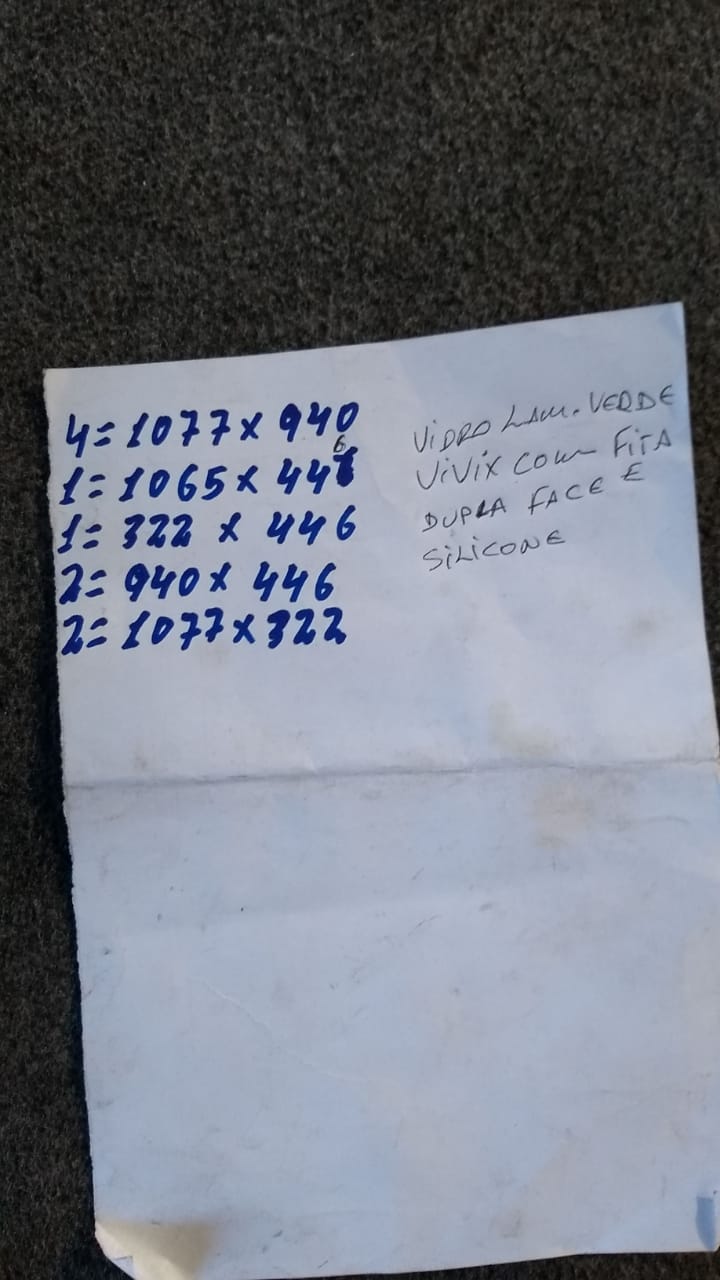 4=1077x940
1=1065x446
1=322 x 446
2=940x 446
2=1077x322
VIDRO LAM. VERDE
VIVIX COM FITA
DUPLA FACE E
SILICONE